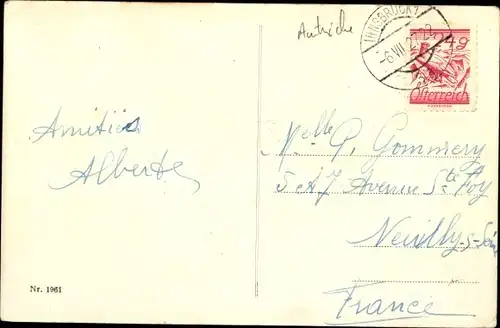 Autriche
INNSBRUCK 1
-6.VII.27.22
24g
Österreich
Amitiés
Alberte
Melle P. Gommery
Avenue Ste Foy
Neuilly-s-Sei
France
Nr. 1961